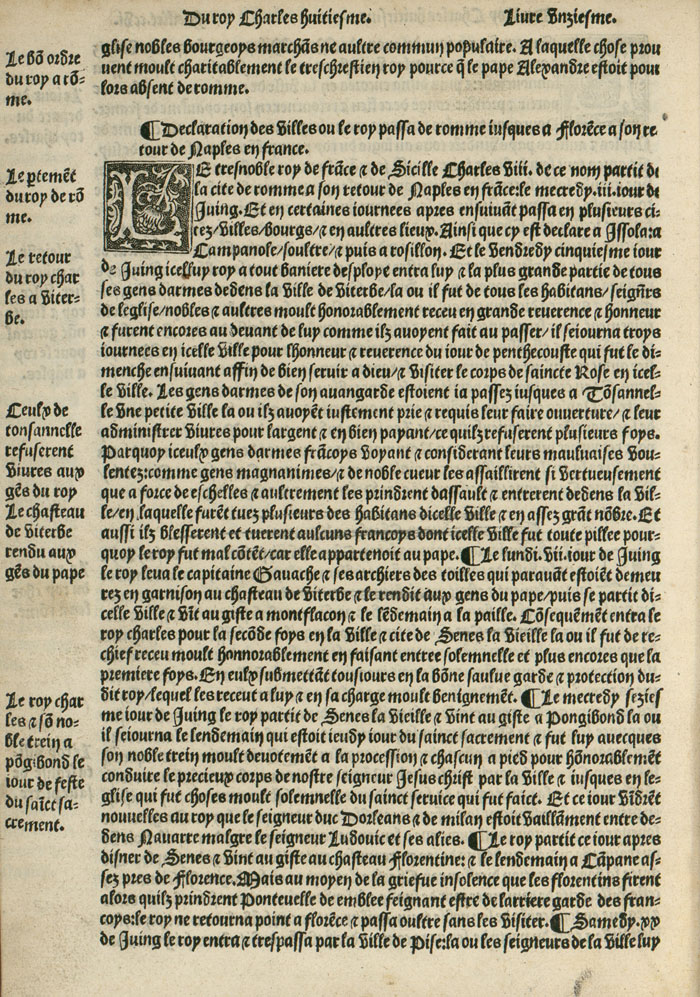 Du roy Charles huitiesme.
Liure Vnziesme.
glise nobles bourgeoys marchãs ne aultre commun populaire. A laquelle chose prou
uent moult charitablement le treschrestien roy pource q̃ le pape Alexandre estoit pour
lors absent de romme.
¶ Declaration des villes ou le roy passa de romme iusques a Florẽce a son re
tour de Naples en france.
LE tresnoble roy de frãce ⁊ de Sicille Charles viii. de ce nom partit de
la cite de romme a son retour de Naples en frãce: le mecredy .iii. iour de
Juing. Et en certaines iournees apres ensuiuãt passa en plusieurs ci/
tez/villes/bourgs/⁊ en aultres lieux. Ainsi que cy est declare a Issola: a
Campanole/soultre/⁊ puis a rosillon. Et le vendredy cinquiesme iour
de Juing icelluy roy a tout baniere desploye entra luy ⁊ la plus grande partie de tous
ses gens darmes dedens la ville de viterbe/la ou il fut de tous les habitans/seign̄rs
de leglise/nobles ⁊ aultres moult honorablement receu en grande reuerence ⁊ honneur
⁊ furent encores au deuant de luy comme ilz auoyent fait au passer/il seiourna troys
iournees en icelle ville pour lhonneur ⁊ reuerence du iour de penthecouste qui fut le di-
menche ensuiuant affin de bien seruir a dieu/⁊ visiter le corps de saincte Rose en icel-
le ville. Les gens darmes de son auangarde estoient ia passez iusques a Tõsannel-
le vne petite ville la ou ilz auoyẽt iustement prie ⁊ requis leur faire ouuerture/⁊ leur
administrer viures pour largent ⁊ en bien payant/ce quilz refuserent plusieurs foys.
Parquoy iceulx gens darmes frãcoys voyant ⁊ considerant leurs mauluaises vou-
lentez: comme gens magnanimes/⁊ de noble cueur les assaillirent si vertueusement
que a force de eschelles ⁊ aultrement les prindrent dassault ⁊ entrerent dedens la vil-
le/en laquelle furẽt tuez plusieurs des habitans dicelle ville ⁊ en assez grãt nõbre. Et
aussi ilz blesserent et tuerent aulcuns francoys dont icelle ville fut toute pillee pour-
quoy le roy fut mal cõtẽt/car elle appartenoit au pape. ¶ Le lundi .vii. iour de Juing
le roy leua le capitaine Gauache ⁊ ses archiers des toilles qui parauãt estoiẽt demeu
rez en garnison au chasteau de viterbe ⁊ le rendit aux gens du pape/puis se partit di-
celle ville ⁊ vĩt au giste a montflacon ⁊ le lẽdemain a la paille. Cõsequẽmẽt entra le
roy charles pour la secõde foys en la ville ⁊ cite de Senes la vieille la ou il fut de re-
chief receu moult honnorablement en faisant entree solemnelle et plus encores que la
premiere foys. En eulx submettãt tousiours en la bõne saulue garde ⁊ protection du-
dit roy/lequel les receut a luy ⁊ en sa charge moult benignemẽt. ¶ Le mecredy sezies
me iour de Juing le roy partit de Senes la vieille ⁊ vint au giste a Pongibond la ou
il seiourna le lendemain qui estoit ieudy iour du sainct sacrement ⁊ fut luy auecques
son noble trein moult deuotemẽt a la procession ⁊ chascun a pied pour hõnorablemẽt
conduire le precieux corps de nostre seigneur Jesus christ par la ville ⁊ iusques en le-
glise qui fut choses moult solemnelle du sainct seruice qui fut faict. Et ce iour vĩdrẽt
nouuelles au roy que le seigneur duc Dorleans ⁊ de milan estoit vaillãment entre de-
dens Nauarre malgre le seigneur Ludouic et ses alies. ¶ Le roy partit ce iour apres
disner de Senes ⁊ vint au giste au chasteau Florentine: ⁊ le lendemain a Cãpane as-
sez pres de Florence. Mais au moyen de la griefue insolence que les florentins firent
alors quilz prindrent Pontuelle de emblee feignant estre de larriere garde des fran-
coys: le roy ne retourna point a florẽce ⁊ passa oultre sans les visiter. ¶ Samedy .xx
de Juing le roy entra ⁊ trespassa par la ville de Pise: la ou les seigneurs de la ville luy
Le bõ ordre
du roy a rõ-
me.
Le ptemẽt
du roy de rõ
me.
Le retour
du roy char
les a viter-
be.
Ceulx de
tonsannelle
refuserent
viures aux
gẽs du roy
Le chasteau
de viterbe
rendu aux
gẽs du pape
Le roy char
les ⁊ sõ no-
ble trein a
põgibond le
iour de feste
du saict sa-
crement.